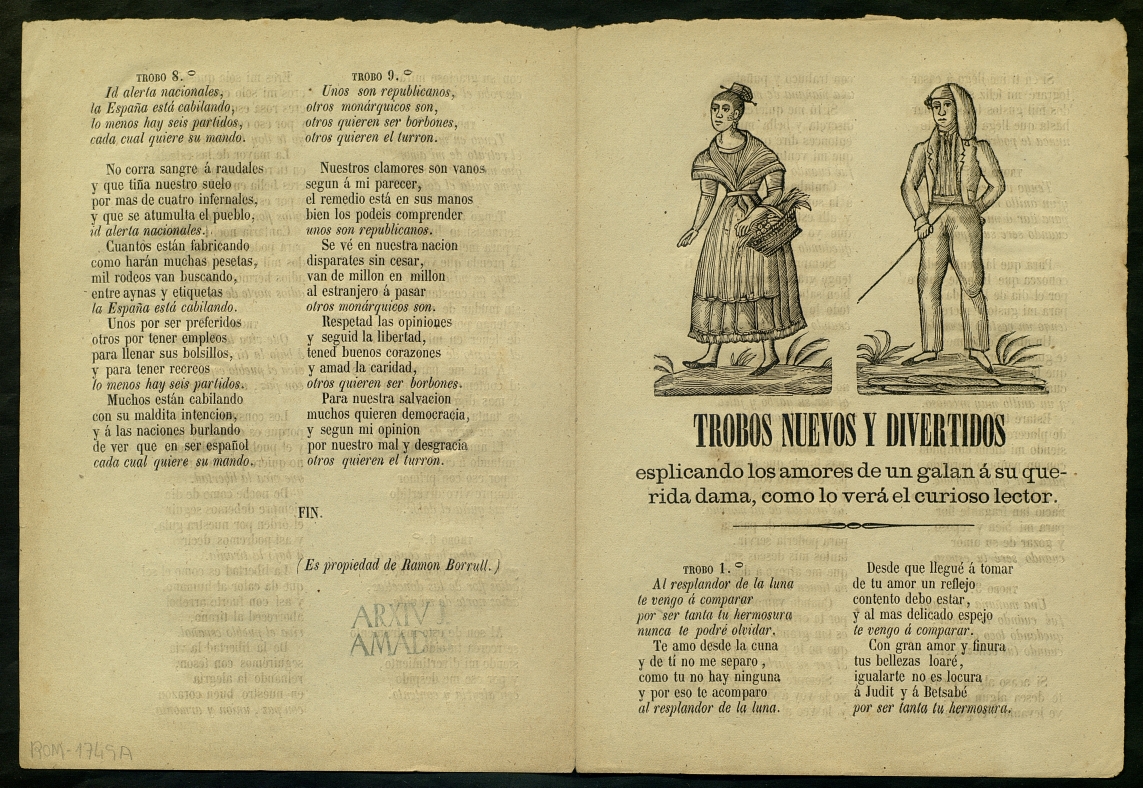 TROBO 8.º
Id alerta nacionales,
la España está cabilando,
lo menos hay seis partidos,
cada cual quiere su mando.
No corra sangre á raudales
y que tiña nuestro suelo
por mas de cuatro infernales,
y que se atumulta el pueblo,
id alerta nacionales.
Cuantos están fabricando
como harán muchas pesetas,
mil rodeos van buscando,
entre aynas y etiquetas
la España está cabilando.
Unos por ser preferidos
otros por tener empleos
para llenar sus bolsillos,
y para tener recreos
lo menos hay seis partidos.
Muchos están cabilando
con su maldita intencion,
y á las naciones burlando
de ver que en ser español
cada cual quiere su mando.
TROBO 9.º
Unos son republicanos,
otros monárquicos son,
otros quieren ser borbones,
otros quieren el turron.
Nuestros clamores son vanos
segun á mi parecer,
el remedio está en sus manos
bien los podeis comprender
unos son republicanos.
Se vé en nuestra nacion
disparates sin cesar,
van de millon en millon
al estranjero á pasar
otros monárquicos son.
Respetad las opiniones
y seguid la libertad,
tened buenos corazones
y amad la caridad,
otros quieren ser borbones.
Para nuestra salvacion
muchos quieren democracia,
y segun mi opinion
por nuestro mal y desgracia
otros quieren el turron.
FIN.
(Es propiedad de Ramon Borrull.)
ARXIU J.
AMADES
ROM-1749A
TROBOS NUEVOS Y DIVERTIDOS
esplicando los amores de un galan á su que-
rida dama, como lo verá el curioso lector.
TROBO 1.º
Al resplandor de la luna
te vengo á comparar
por ser tanta tu hermosura
nunca te podré olvidar.
Te amo desde la cuna
y de tí no me separo,
como tu no hay ninguna
y por eso te acomparo
al resplandor de la luna.
Desde que llegué á tomar
de tu amor un reflejo
contento debo estar,
y al mas delicado espejo
te vengo á comparar.
Con gran amor y finura
tus bellezas loaré,
igualarte no es locura
á Judit y á Betsabé
por ser tanta tu hermosura.